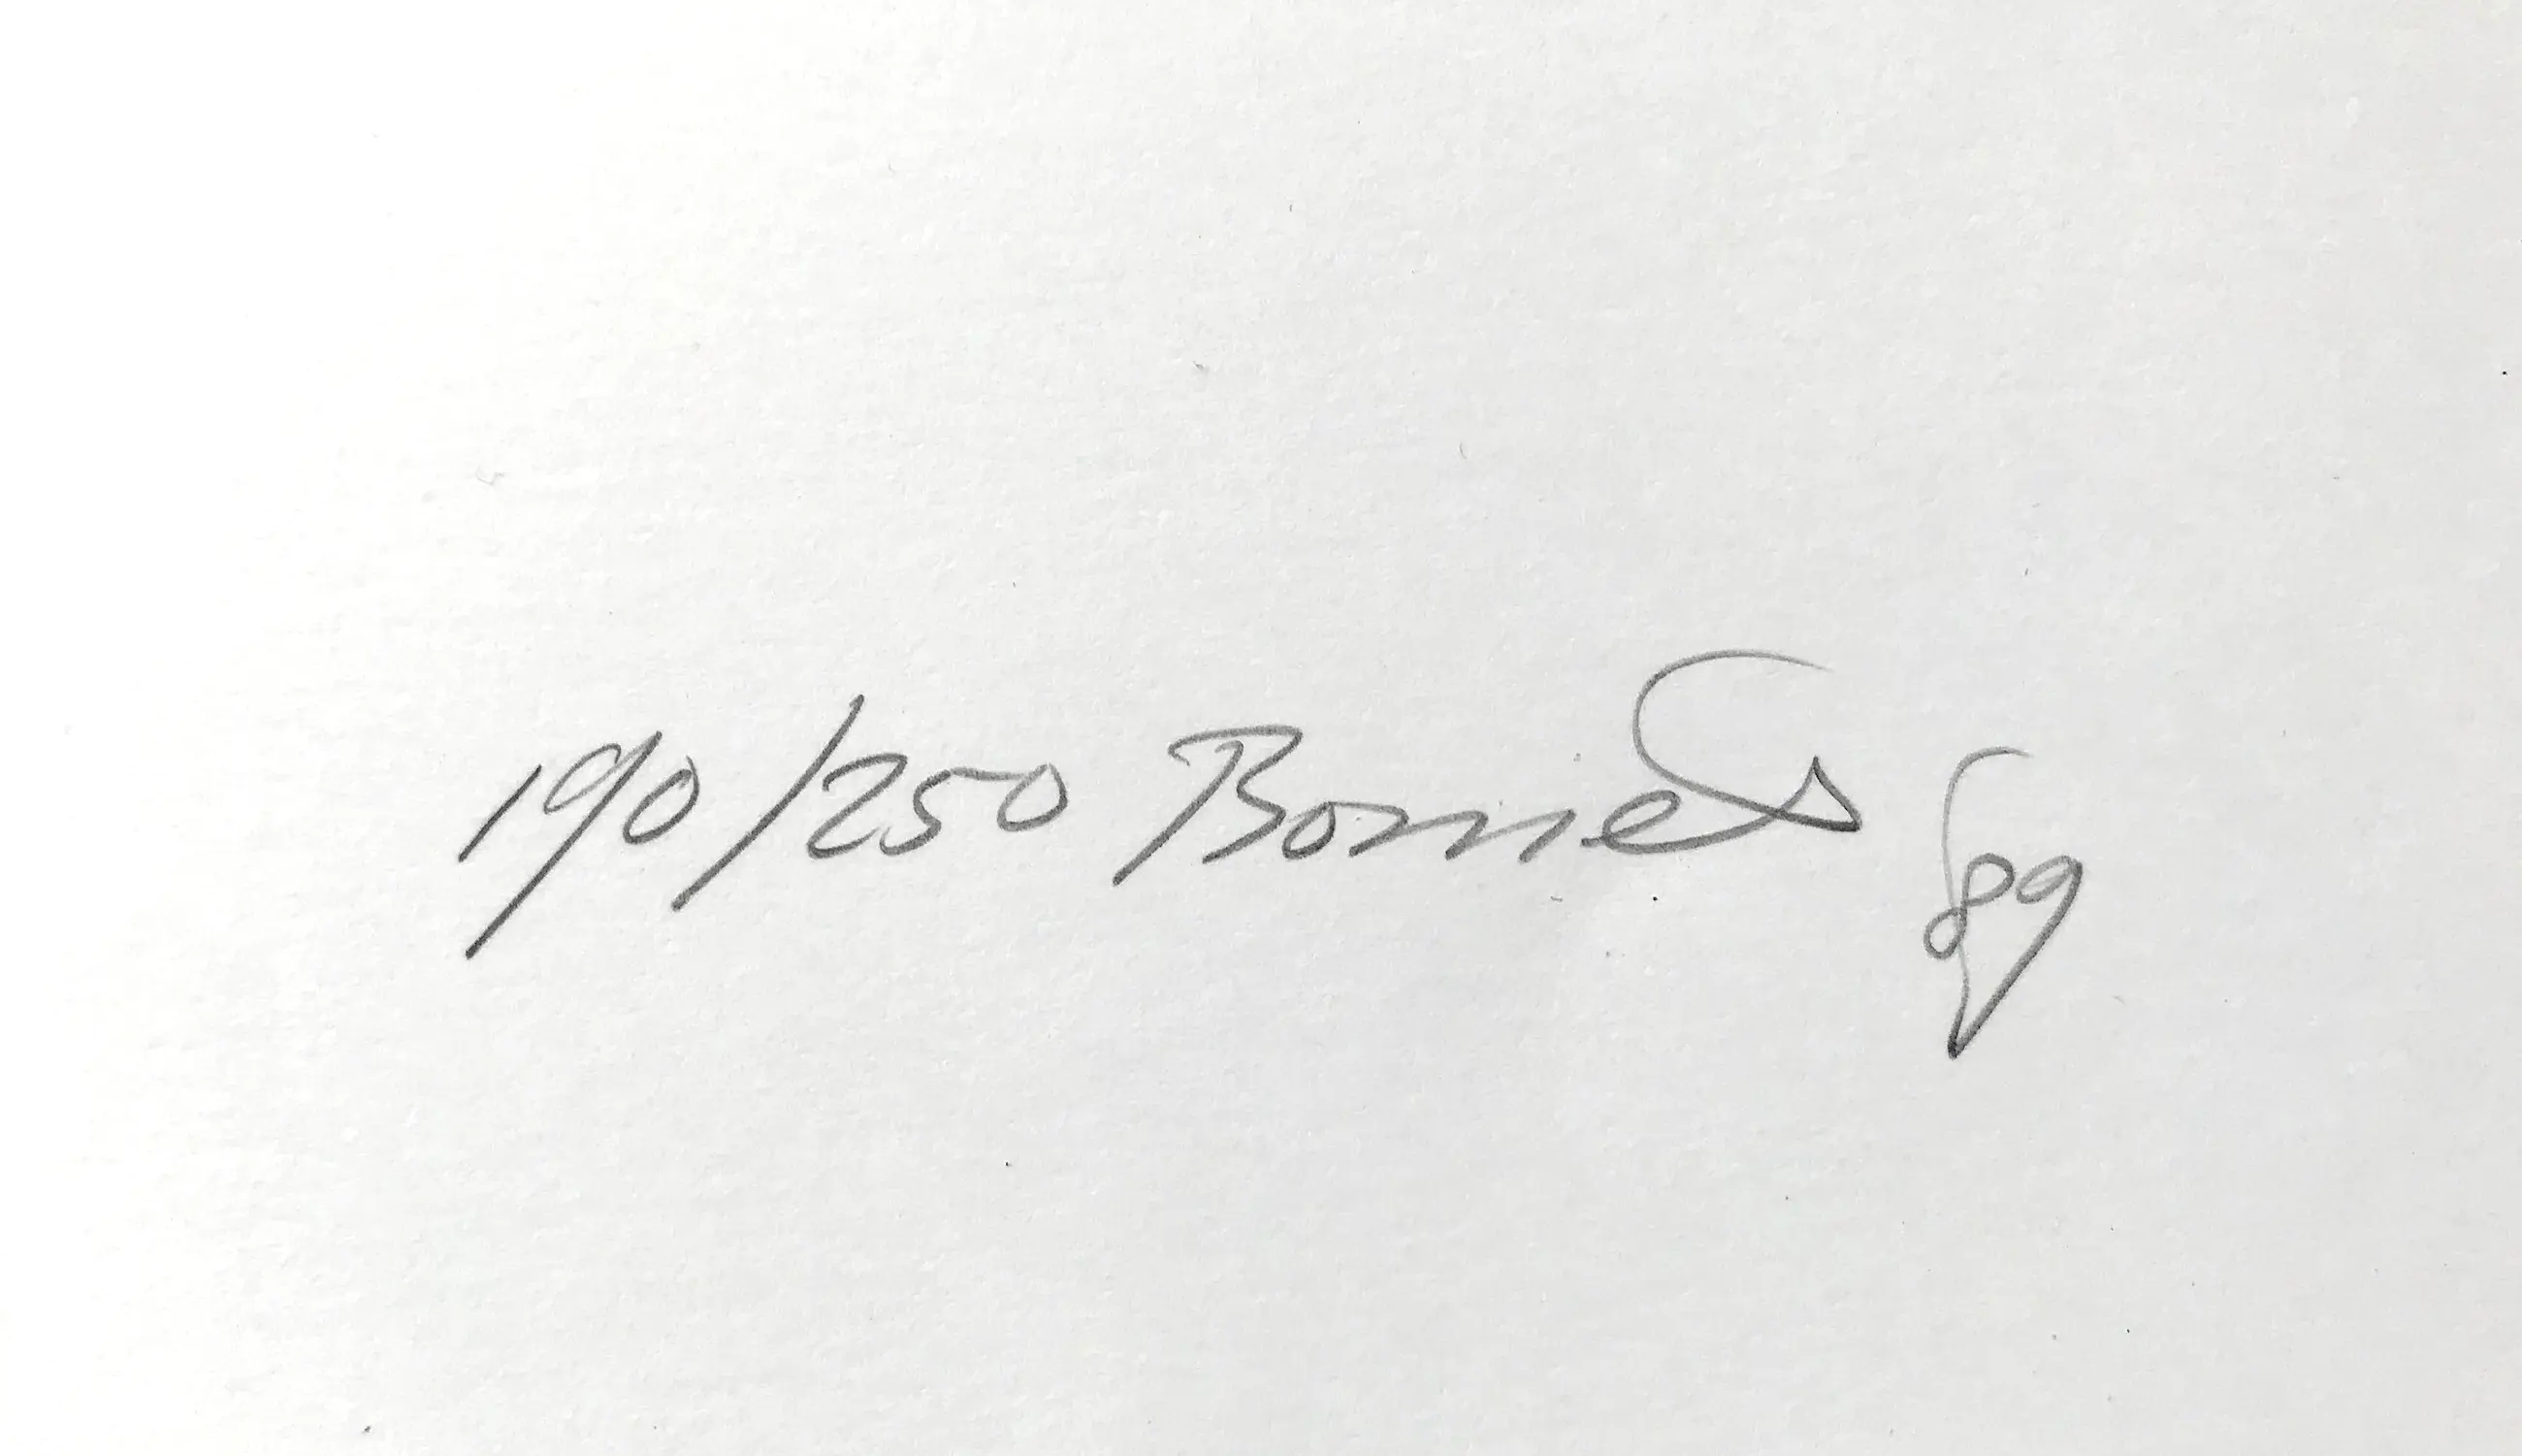 190/250 Bonnet 89